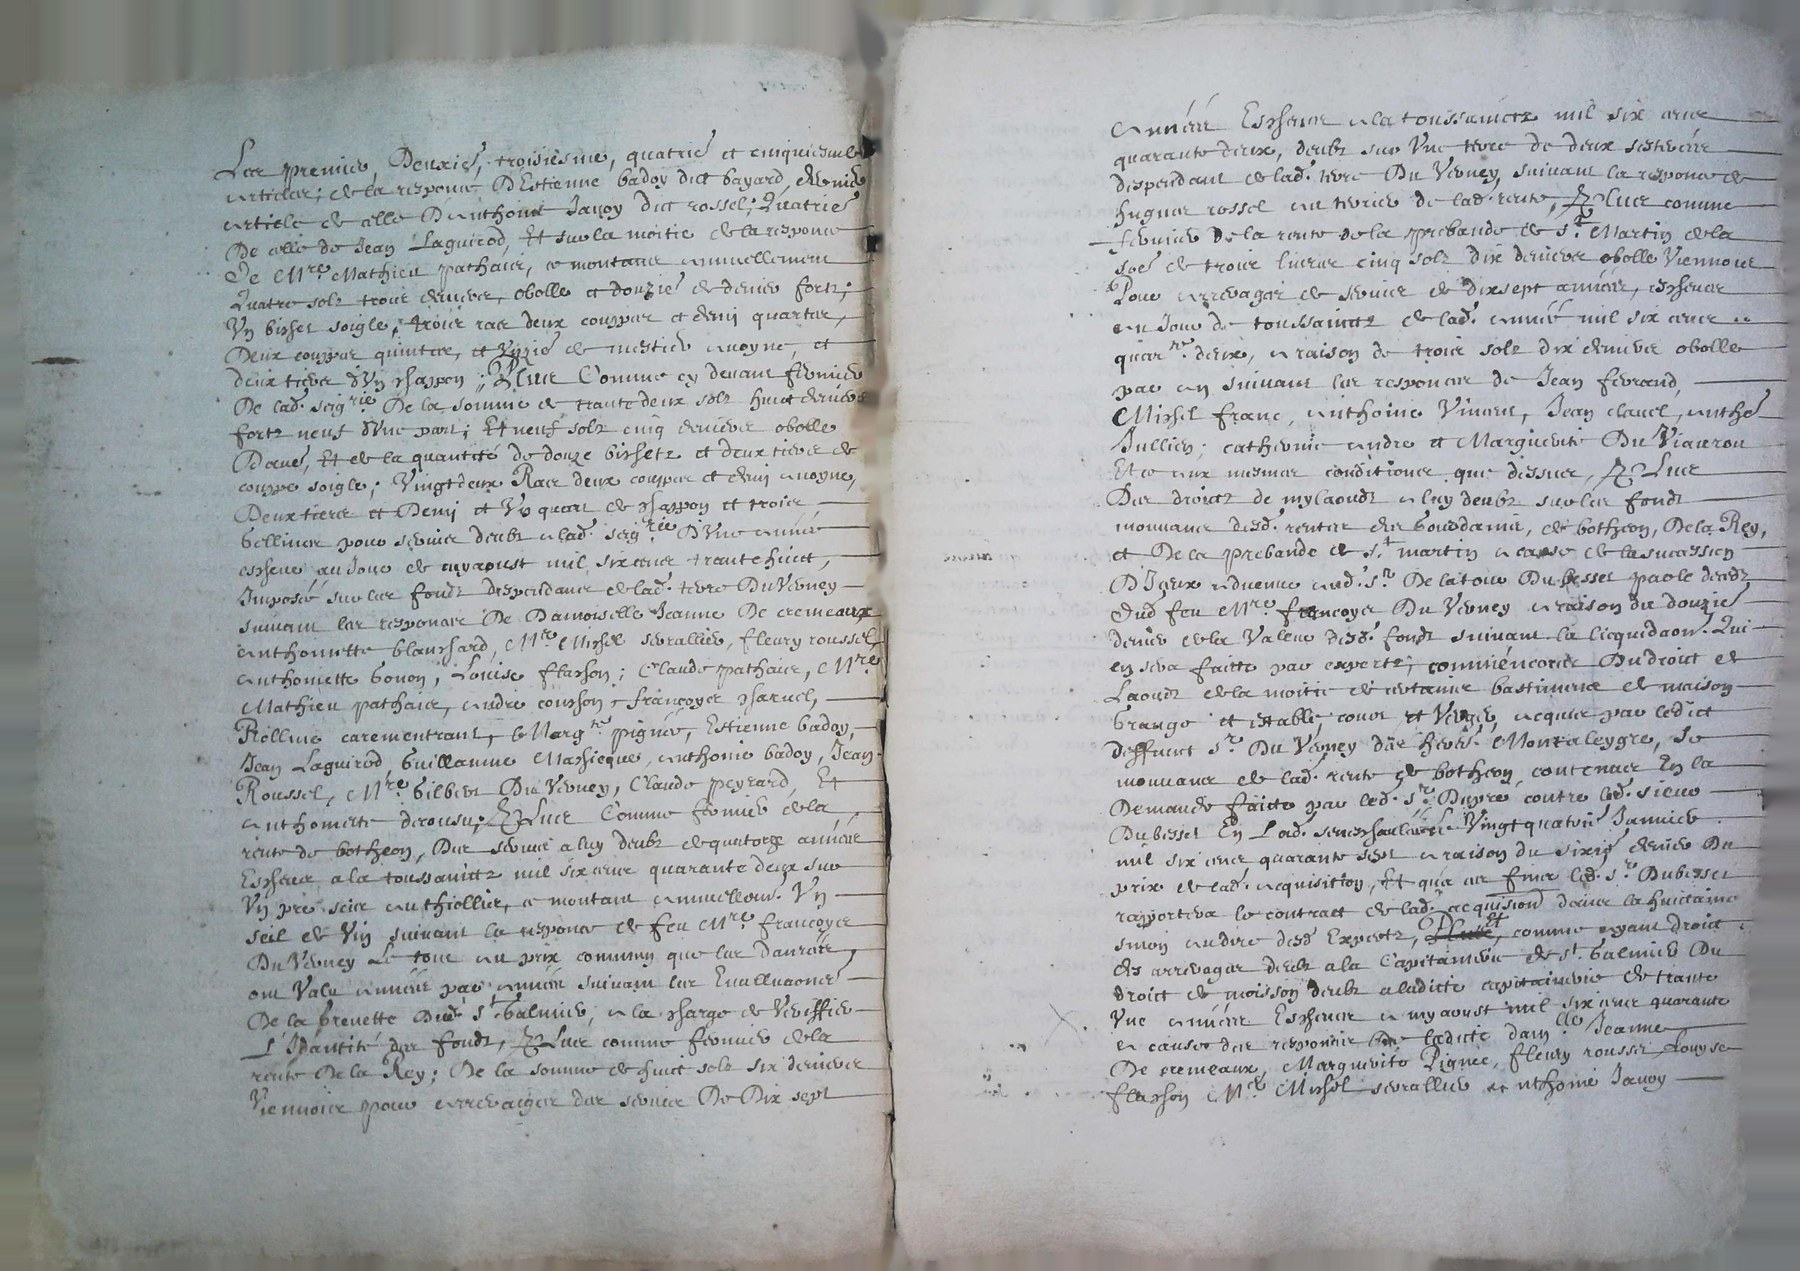 Les premier, Deuxies, troisiesme, quatries et cinquiesme
articles; de la responce D'Estienne badoy dict bayard, dernier
article de celle D'Anthoine Javoy dict rossel; Quatries
De celle de Jean Laguirod, Et sur la moitié de la responce
De Mre Mathieu pathaire, se montant annuellement
Quatre solz trois deniers, obolle et douzies de denier fortz;
Vn bichet soigle, trois ras deux couppes et demy quartes,
Deux couppes et Vnzies de mestier avoyne, et
deux tiers d'Vn chappon; Plus Comme cy devant fermier
De lad. seigrie De la somme de trante deux solz huict deniers
fortz neuf d'Vne part; Et neuf solz cinq deniers obolle
D'aue, Et de la quantité de douze bichetz et deux tiers de
couppe soigle; Vingt deux Ras deux couppes et demy avoyne,
Deux tiers et Demy et Vn quart de chappon et trois
Gellines pour servis deubz a lad. seigrie D'Vne année
escheue au Jour de myaoust mil six cens trante huict,
Imposé sur les fondz despendans de lad. terre Du Verney
suivant les responces De Damoiselle Jeanne De cremeaux
Anthoinette blanchard, Mre Michel servallier, fleury roussel,
Anthoinette bonon, Louise flachon; Claude pathaire, Mre
Mathieu pathaire, André courhon, françoyes charuel,
Rolline carementrant, Margte pignée, Estienne badoy,
Jean Laguirod Guillaume Machieque, Anthoine badoy, Jean
Roussel, Mre Gilbert Du Verney, Claude peyrard, Et
Anthoinette derousu; Plus Comme fermier de la
rente de botheon, Des servis a luy deubz de quatorze années
Escheues a la toussainctz mil six cens quarante deux sur
Vn pre scis au thiollier, se montant annuellemt. Vn
seil de Vin suivant la responce de feu Mre françoyes
Du Verney Le tout au prix commun que les danrées,
ont Valu année par année suivant les Evalluaones
De la grenette Dud. St Galmier, a la charge de Veriffier
L'Idantité des fondz, Plus comme fermier de la
rente De la Rey; De la somme de huict solz six deniers
Viennois pour arreraiges des servis De Dix sept
années Escheues a la toussainctz mil six cens
quarante deux, deubz sur Vne terre de deux sesterées
despendant de lad. terre Du Verney, suivant la responce de
hugues rossel au terrier de lad. rente, Plus comme
fermier de la rente de la prebande de St Martin de la
soe de trois livres cinq solz dix deniers obolle Viennois
Pour arrerages de servis de dixsept années, escheues
au Jour de toussainctz de lad. année mil six cens
quarte deux, a raison de trois solz dix deniers obolle
par an suivant les responces de Jean ferrand,
Michel franc, Anthoine Vincent, Jean clauel, Anthe
Jullien; catherine andre et Marguerite Du Viauron
Et ce aux mesmes conditions que dessus, Plus
Des droictz de mylaoudz a luy deubz sur les fondz
mouvans desd. rentes de Goutdame, de botheon, De la Rey,
et De la prebande de St martin a cause de la succession
D'Iceux advenue aud. sr De la tour Du besset par le deces
Dud feu Mre françoyes Du Verney a raison du douzies
denier de la Valeur desd. fondz suivant la licquidaon. Qui
en sera faitte par expertz; commencer Du droict de
Laoudz de la moitié de certains bastimens de maison
Grange et estable, cour et Verger, acquis par ledict
deffunct sr. Du Verney des hers. Montaleygre, se
mouvans de lad. rente de botheon, contenus En la
Demande faicte par led. sr Dupré contre led. sieur
Dubesset En Lad. seneschaulcée Le Vingt quatries Janvier
mil six cens quarante sept a raison du sixies denier Du
prix de lad. acquisition, Et qu'a ces fins led. sr. Dubesset
rapportera le contract de lad. acquisiõn dans la huictaine
sinon au dire desd Expertz, Et comme ayant droict
des arrerages deubz a la Capitainerie de St Galmier Du
droict de moisson deubz a ladicte capitainerie de trante
Vne années Escheues a myaoust mil six cens quarante
a cause des responces de ladicte damlle Jeanne
De cremeaux, Marguerite Pignée, fleury roussel, Louyse
flachon Mre Michel servallier et Anthoine Javoy